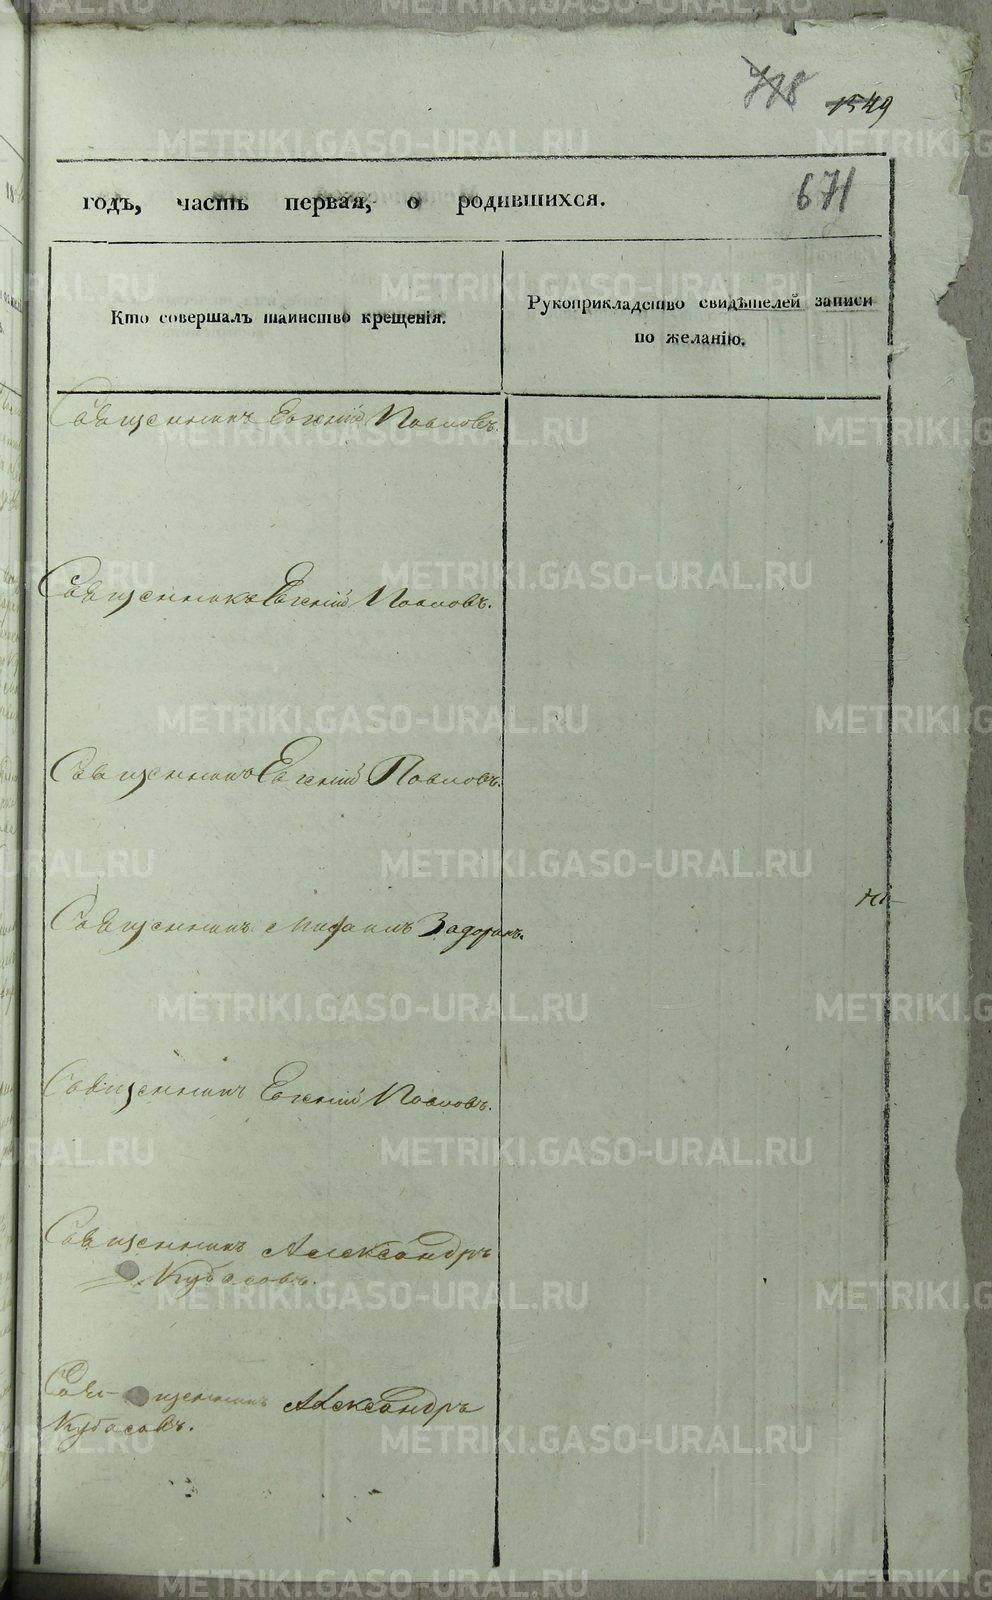 778 1549
годъ, часть первая, о родившихся. 671
Кто совершалъ таинство крещенія.
Рукоприкладство свидѣтелей записи
по желанію.
Священникъ Евгеній Павловъ.
Священникъ Евгеній Павловъ.
Священникъ Евгеній Павловъ.
Священникъ Михаилъ Задоринъ.
Священникъ Евгеній Павловъ.
Священникъ Александръ
Кубасовъ.
Свя-щенникъ Александръ
Кубасовъ.
METRIKI.GASO-URAL.RU